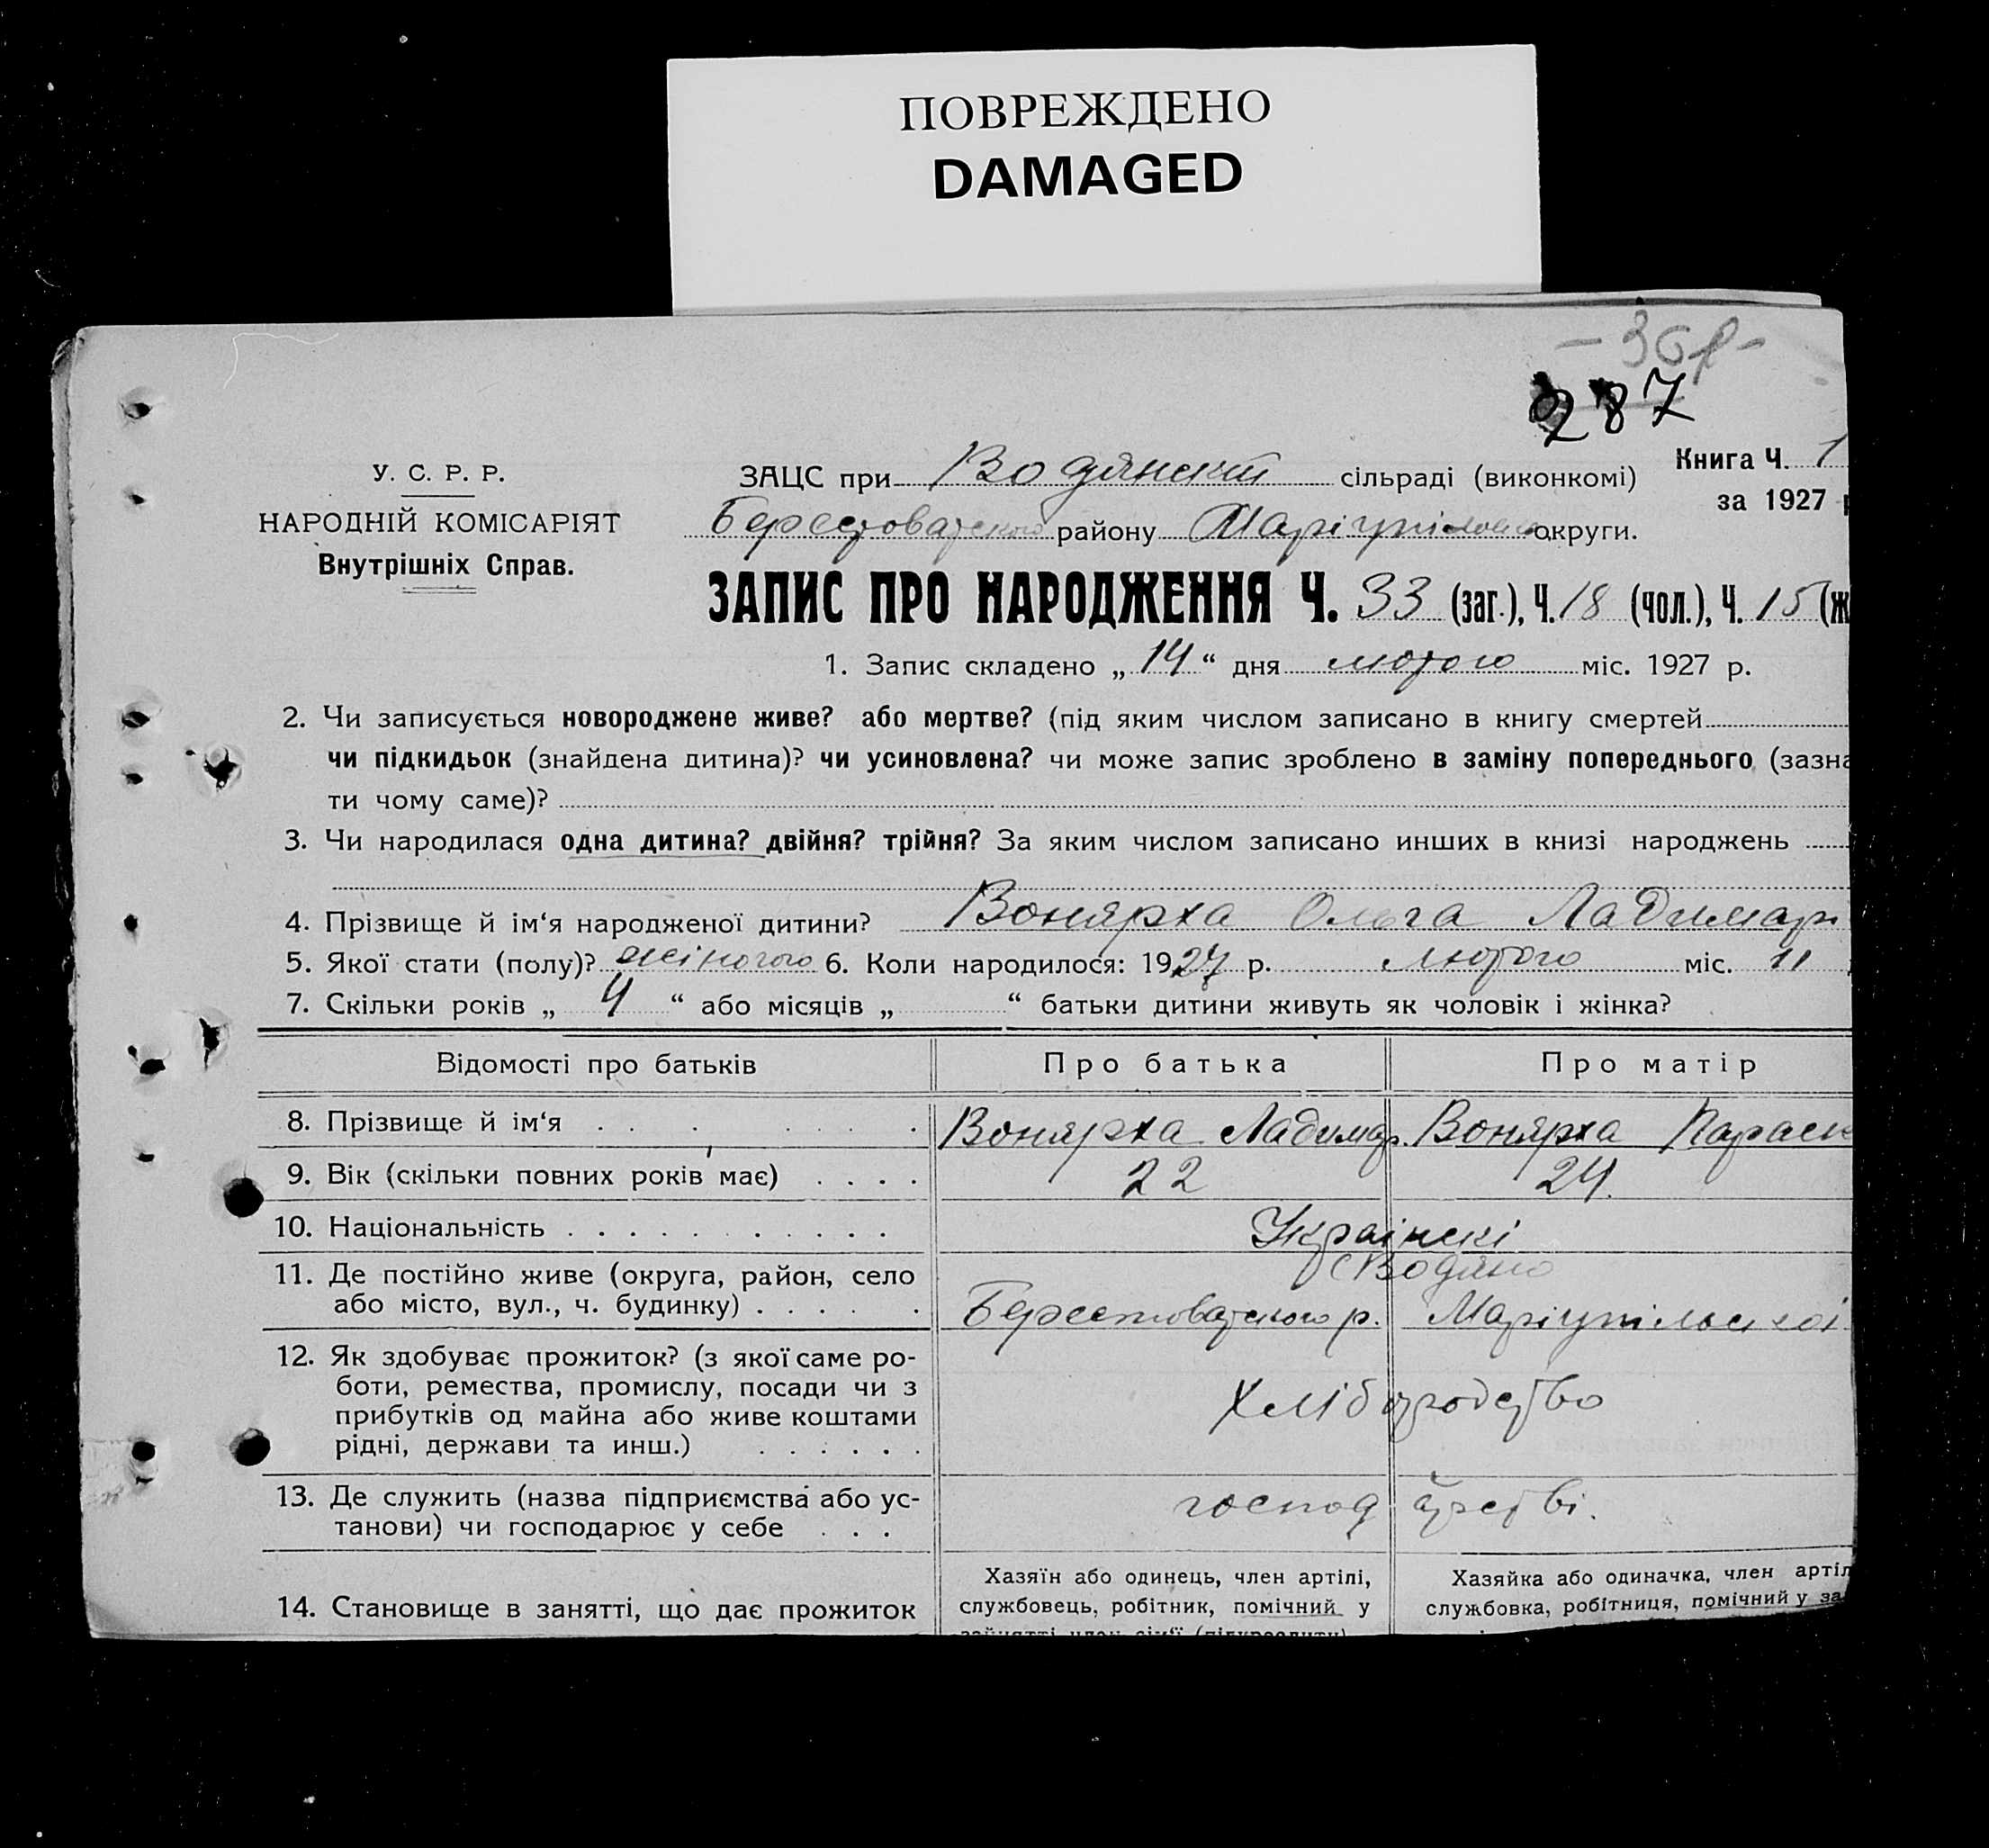 ПОВРЕЖДЕНО
DAMAGED
287
У. С. Р. Р.
НАРОДНІЙ КОМІСАРІЯТ
Внутрішніх Справ.
Книга Ч. 1
за 1927 р
ЗАЦС при Водянскій сільраді (виконкомі)
Берестоватского району Маріупільскоі округи.
ЗАПИС ПРО НАРОДЖЕННЯ Ч. 33 (заг.), Ч. 18 (чол.), Ч. 15 (ж
1. Запис складено „ 14 “ дня лютого міс. 1927 р.
2. Чи записується новороджене живе? або мертве? (під яким числом записано в книгу смертей
чи підкидьок (знайдена дитина)? чи усиновлена? чи може запис зроблено в заміну попереднього (зазна
ти чому саме)?
3. Чи народилася одна дитина? двійня? трійня? За яким числом записано инших в книзі народжень
4. Прізвище й ім‘я народженої дитини? Вонярха Ольга Ладимар
5. Якої стати (полу)? жіночого 6. Коли народилося: 1927 р. лютого міс. 11
7. Скільки років „ 4 “ або місяців „ “ батьки дитини живуть як чоловік і жінка?
Відомості про батьків Про батька Про матір
8. Прізвище й ім‘я . . . . . . Вонярха Ладимар. Вонярха Параск
9. Вік (скільки повних років має) . . . . 22 24.
10. Національність . . . . . . . . . . . Українскі
11. Де постійно живе (округа, район, село с Водяно
або місто, вул., ч. будинку) . . . . . Берестоватского р. Маріупільскоі
12. Як здобуває прожиток? (з якої саме ро-
боти, ремества, промислу, посади чи з Хлібородство
прибутків од майна або живе коштами
рідні, держави та инш.) . . . . . .
13. Де служить (назва підприємства або ус- господарстві.
танови) чи господарює у себе . . .
Хазяїн або одинець, член артілі, Хазяйка або одиначка, член артіл
14. Становище в занятті, що дає прожиток службовець, робітник, помічний у службовка, робітниця, помічний у за
зайнятті член сім‘ї (підкреслити)